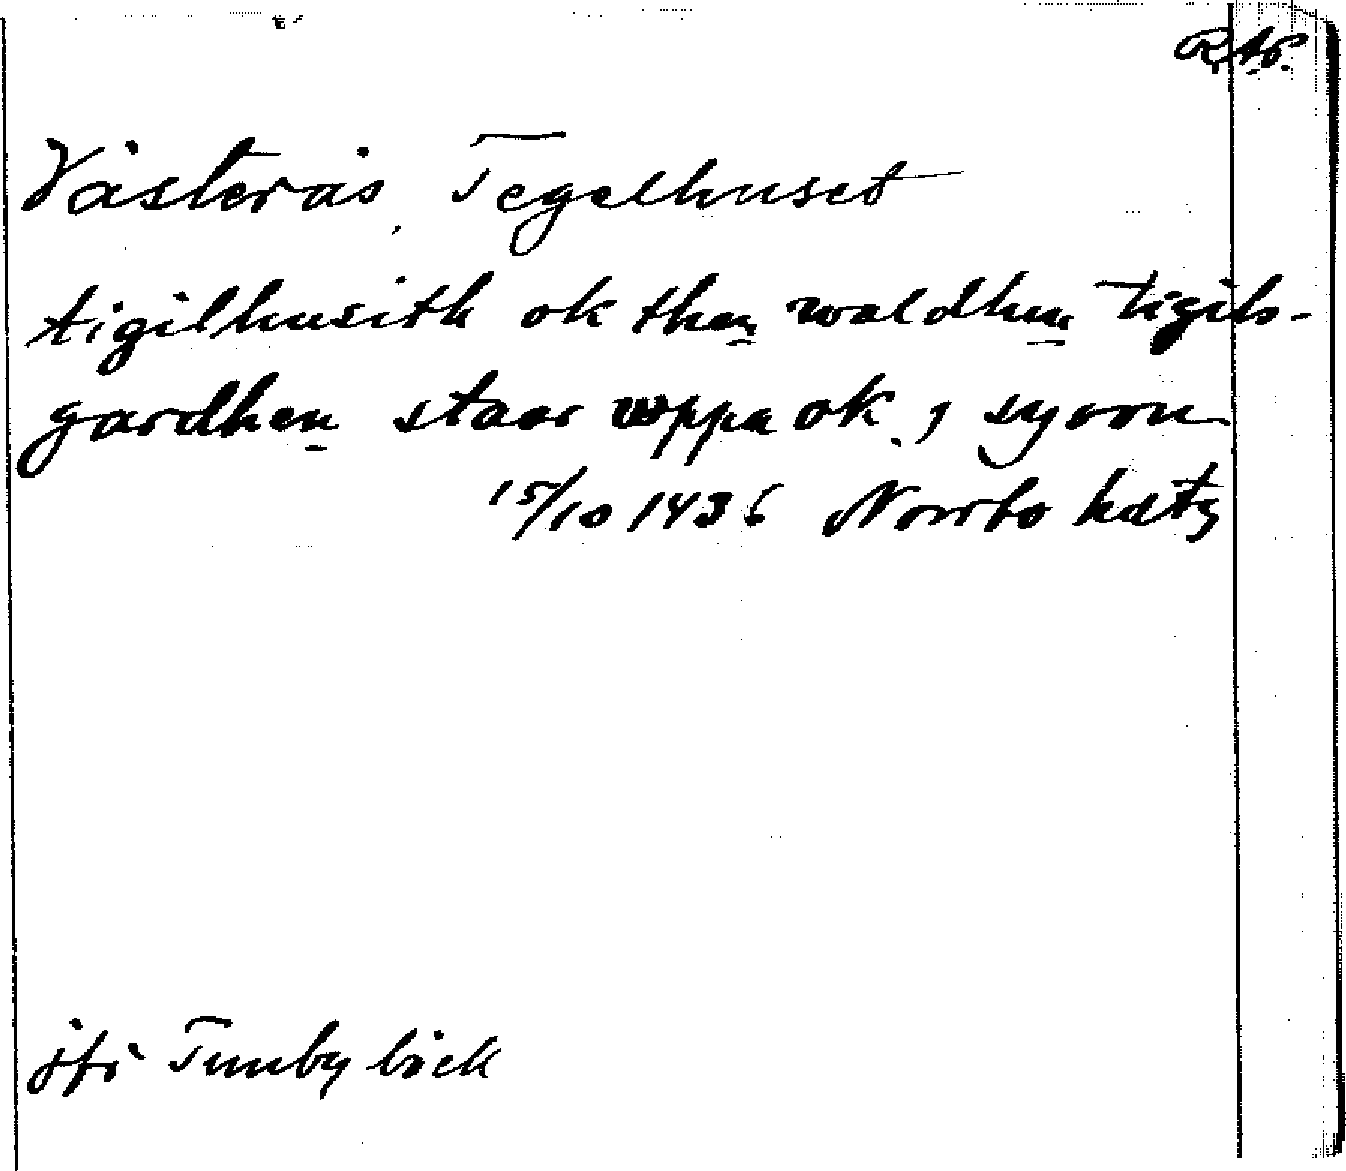 Västerås, Tegelhuset
tigilhusith ok then waldhen tigils-
gardhen staar uppa ok j syoon
15/10 1436 Norrbo hdtg
jfr Tunby bäck